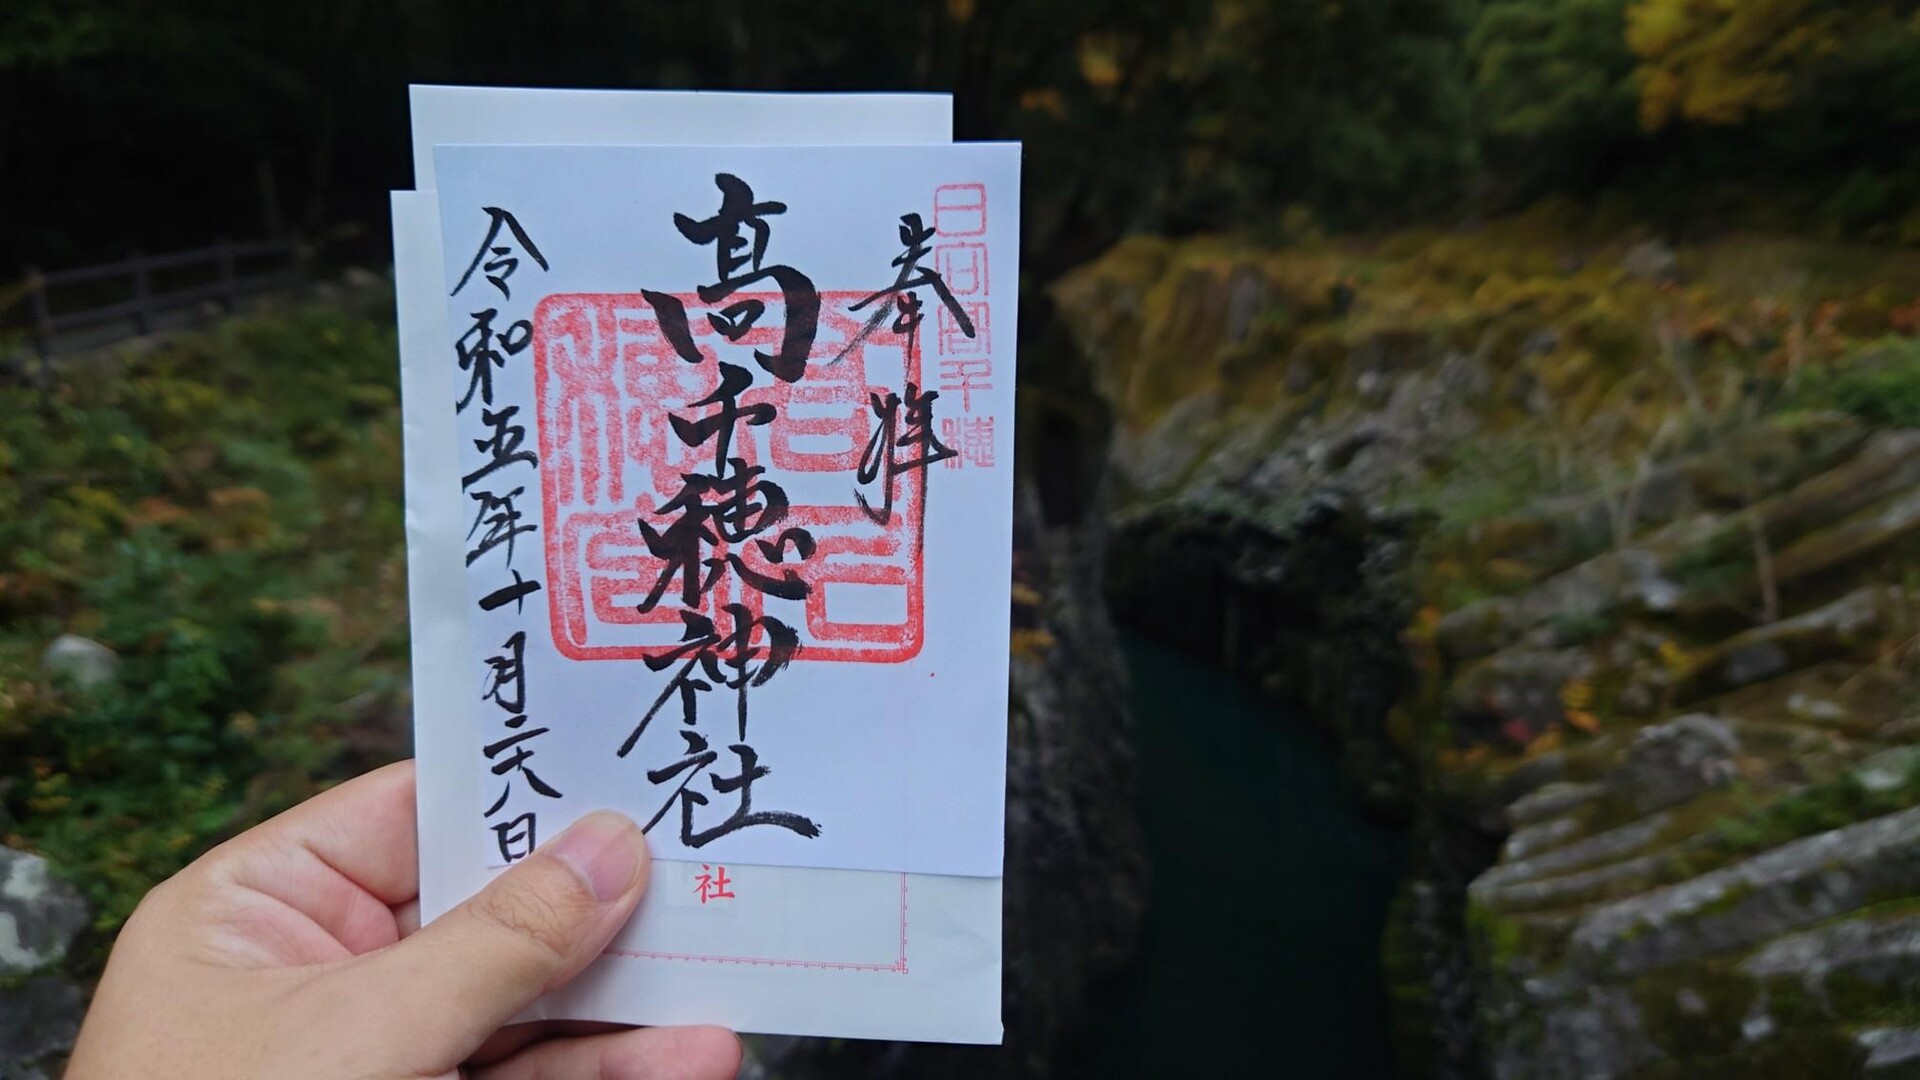 日向高千穂
奉拝
高千穂神社
令和五年十月二十八日
社